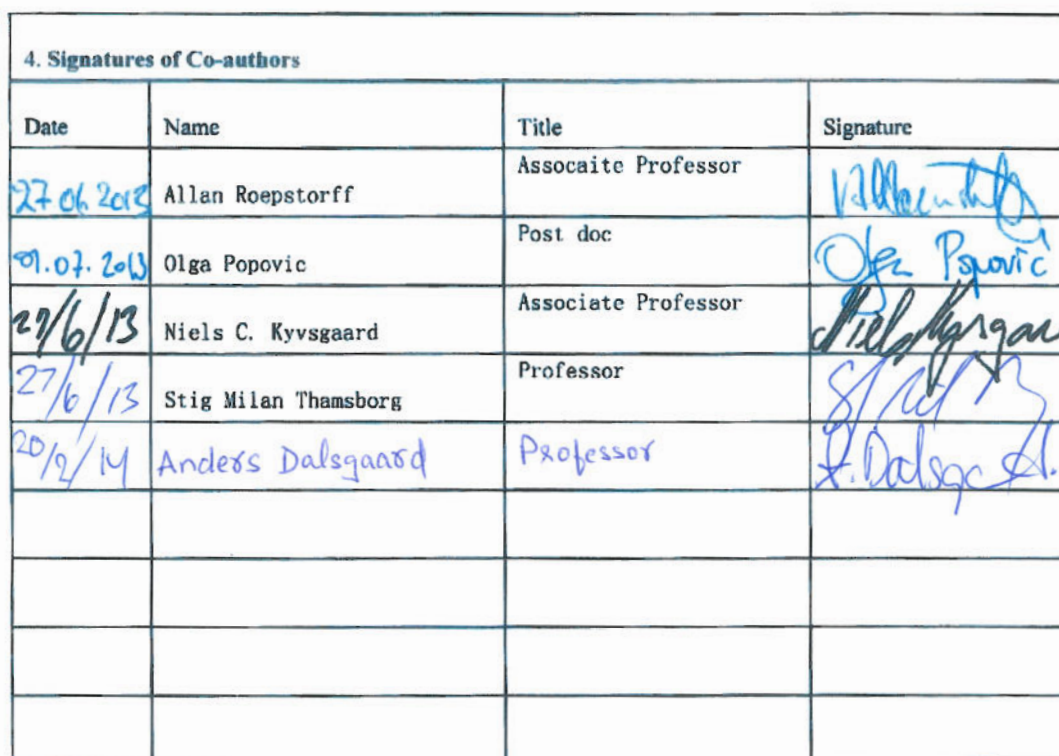 4. Signatures of Co-authors
Date Name Title Signature
27 06 2013 Allan Roepstorff Assocaite Professor
01.07.2013 Olga Popovic Post doc Olga Popović
27/6/13 Niels C. Kyvsgaard Associate Professor Niels Kyvsgaar
27/6/13 Stig Milan Thamsborg Professor
20/2/14 Anders Dalsgaard Professor A. Dalsg A.